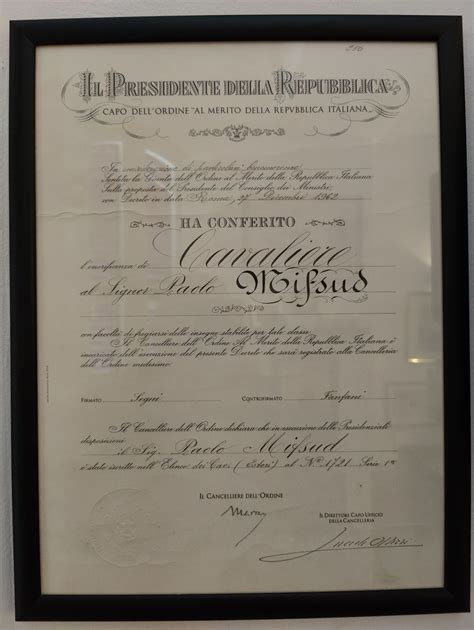 210
IL PRESIDENTE DELLA REPUBBLICA
CAPO DELL'ORDINE "AL MERITO DELLA REPVBBLICA ITALIANA"
In considerazione di particolari benemerenze
Sentita la Giunta dell'Ordine al Merito della Repubblica Italiana
Sulla proposta del Presidente del Consiglio dei Ministri
con Decreto in data Roma, 27 Dicembre 1962
HA CONFERITO
l'onorificenza di Cavaliere
al Signor Paolo Mifsud
con facoltà di fregiarsi delle insegne stabilite per tale classe.
Il Cancelliere dell'Ordine Al Merito della Repubblica Italiana è
incaricato dell'esecuzione del presente Decreto che sarà registrato alla Cancelleria
dell'Ordine medesimo.
FIRMATO Segni CONTROFIRMATO Fanfani
Il Cancelliere dell'Ordine dichiara che in esecuzione delle Presidenziali
disposizioni il Sig. Paolo Mifsud
è stato iscritto nell'Elenco dei Cav. (Esteri) al N° 1721 Serie 1ª
IL CANCELLIERE DELL'ORDINE
IL DIRETTORE CAPO UFFICIO
DELLA CANCELLERIA